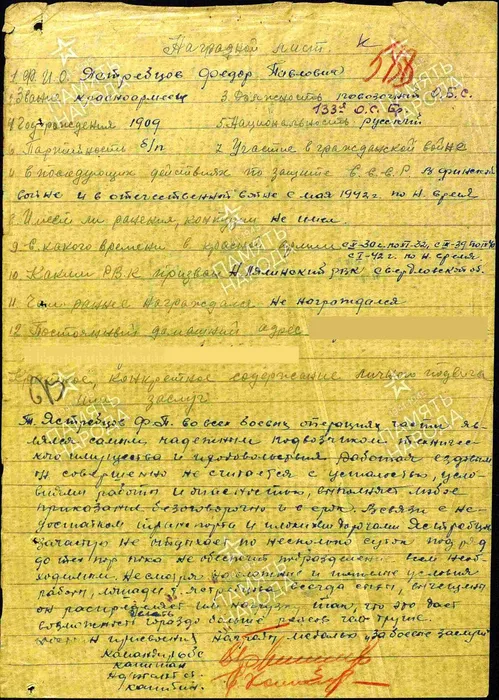 Наградной лист
К 588
1 Ф.И.О. Ястребцов Федор Павлович
2 Звание красноармеец 3. Должность повозочный О.Б.С.
133й О.С.Бр.
4 Год рождения 1909 5. Национальность русский
6 Партийность б/п 7. Участие в гражданской войне
и в последующих действиях по защите С.С.С.Р. в финской
войне и в отечественной войне с мая 1942 г. по н. время
8. Имеет ли ранения, контузии не имел.
9 С какого времени в красной армии
с V-42 г. по н. время.
10 Каким РВК призван Н. Лялинский РВК Свердловской об.
11 Чем ранее награждался не награждался
12 Постоянный домашний адрес
Краткое, конкретное содержание личного подвига
или заслуг
Т. Ястребцов Ф.П. во всех боевых операциях части яв-
лялся самым надежным подвозчиком техничес-
кого имущества и продовольствия. Работая ездовым
он совершенно не считается с усталостью, усло-
виями работы и опасностью, выполняет любое
приказание безоговорочно и в срок. В связи с не-
достатком транспорта и плохими дорогами Ястребцов
зачастую не отдыхает по несколько суток подряд
до тех пор пока не обеспечит подразделения всем необ-
ходимым. Несмотря на тяжелые условия
работы, лошади у Ястребцова всегда сыты, вычищены
он распределяет их нагрузку так, что это дает
возможность гораздо больше рейсов чем другие.
к присвоения награды медалью "за боевые заслуги"
Командир ОБС
капитан
Нач. штаба
капитан
ПАМЯТЬ НАРОДА